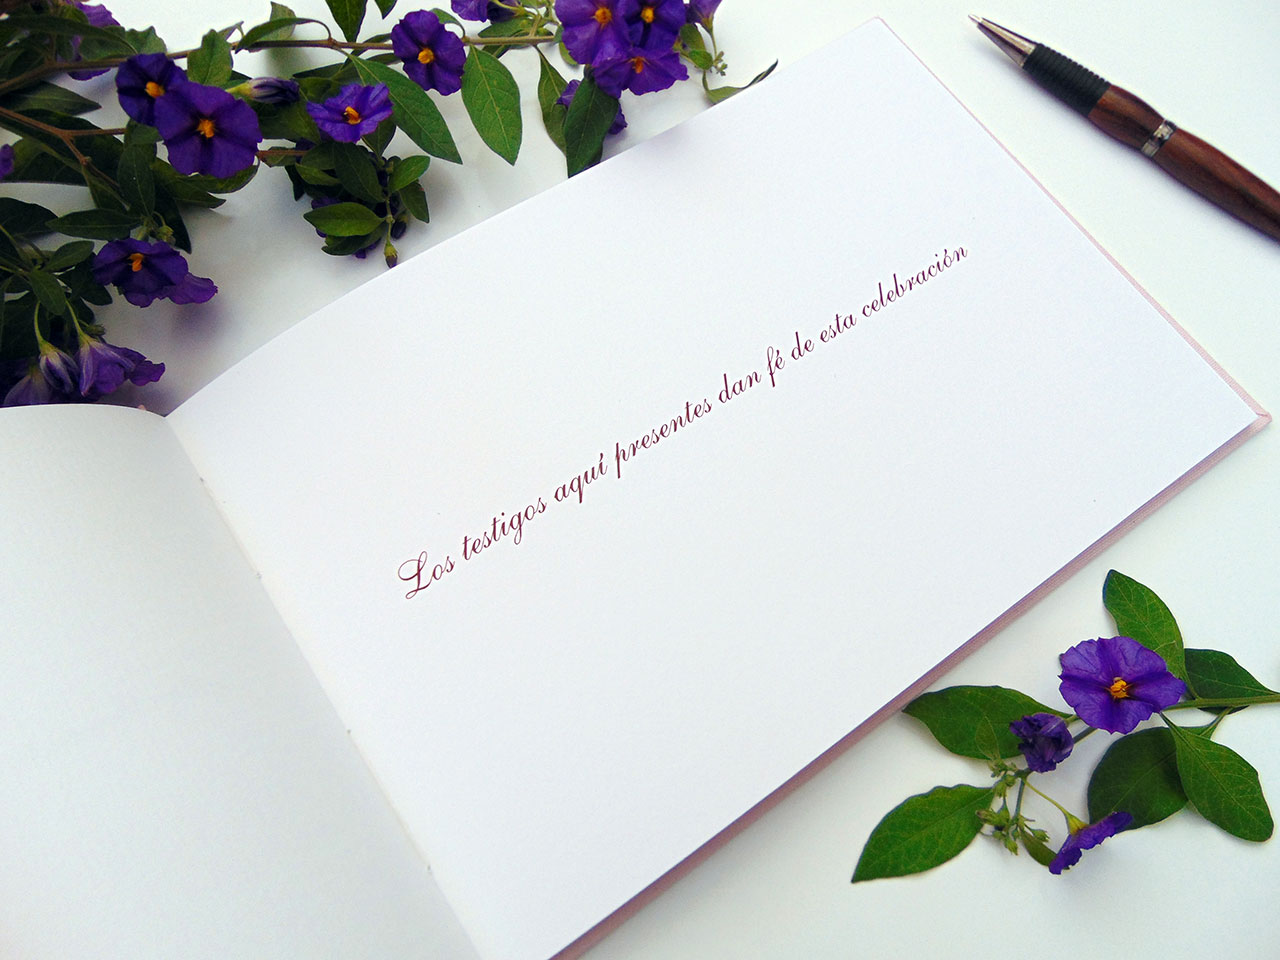 Los testigos aquí presentes dan fé de esta celebración